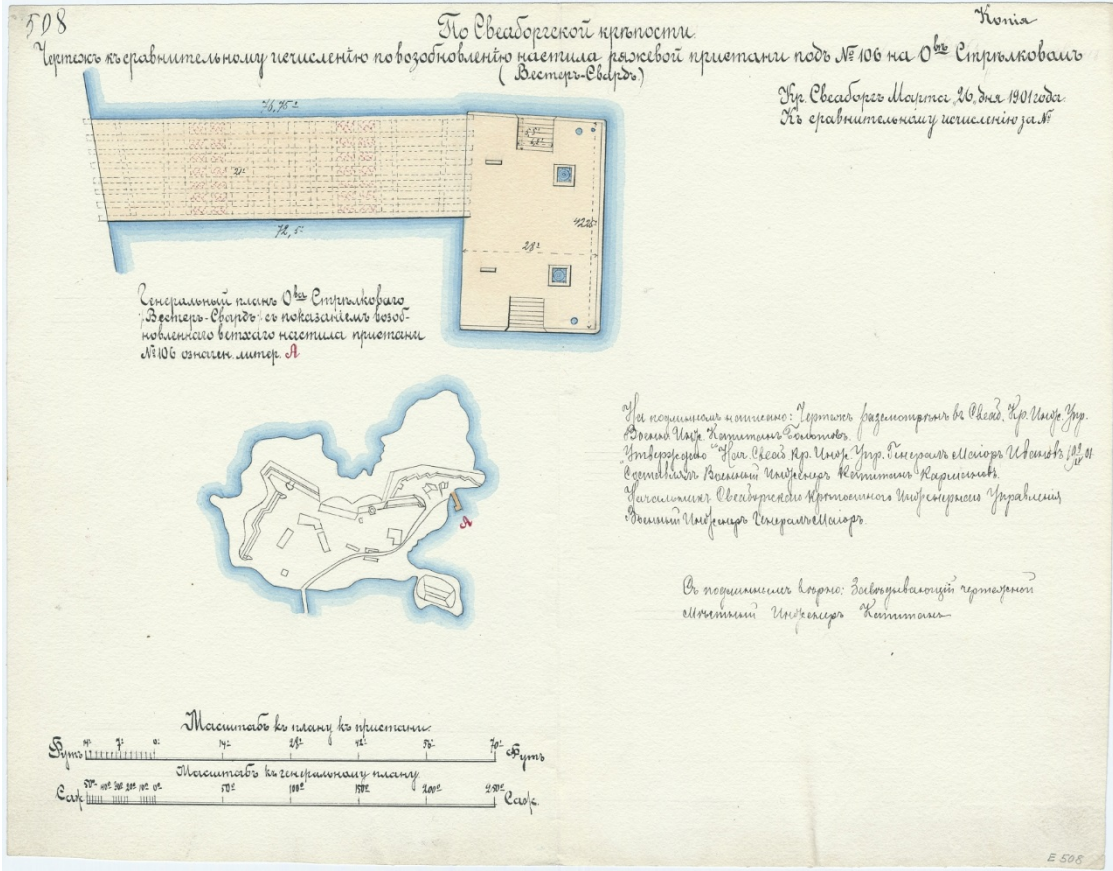 508
Копія
По Свеаборгской крѣпости.
Чертежъ къ сравнительному исчисленію по возобновленію настила ряжевой пристани подъ № 106 на О-вѣ Стрѣлковомъ
(Вестеръ-Свардъ.)
Кр. Свеаборгъ Марта „26„ дня 1901 года.
Къ сравнительному исчисленію за №
76,75
21
72,5
42,25
28
Генеральный планъ О-ва Стрѣлковаго
/Вестеръ-Свардъ/ съ показаніемъ возоб-
новленнаго ветхаго настила пристани
№ 106 означен. литер. А
А
На подлинномъ написано: Чертежъ разсмотрѣнъ въ Свеаб. Кр. Инж. Упр.
Военн. Инж. Капитанъ Болотовъ.
Утверждаю Нач. Свеаб. Кр. Инж. Упр. Генералъ Маіоръ Ивановъ
Составлялъ Военный Инженеръ Капитанъ
Начальникъ Свеаборгскаго Крѣпостного Инженернаго Управленія
Военный Инженеръ Генералъ Маіоръ.
Съ подлиннымъ вѣрно: Завѣдывающій чертежной
Инженеръ Капитанъ
Масштабъ къ плану къ пристани.
Футъ 14 7 0 14 28 42 56 70 Футъ
Масштабъ къ генеральному плану
Саж. 50 40 30 20 10 0 50 100 150 200 250 Саж.
E 508